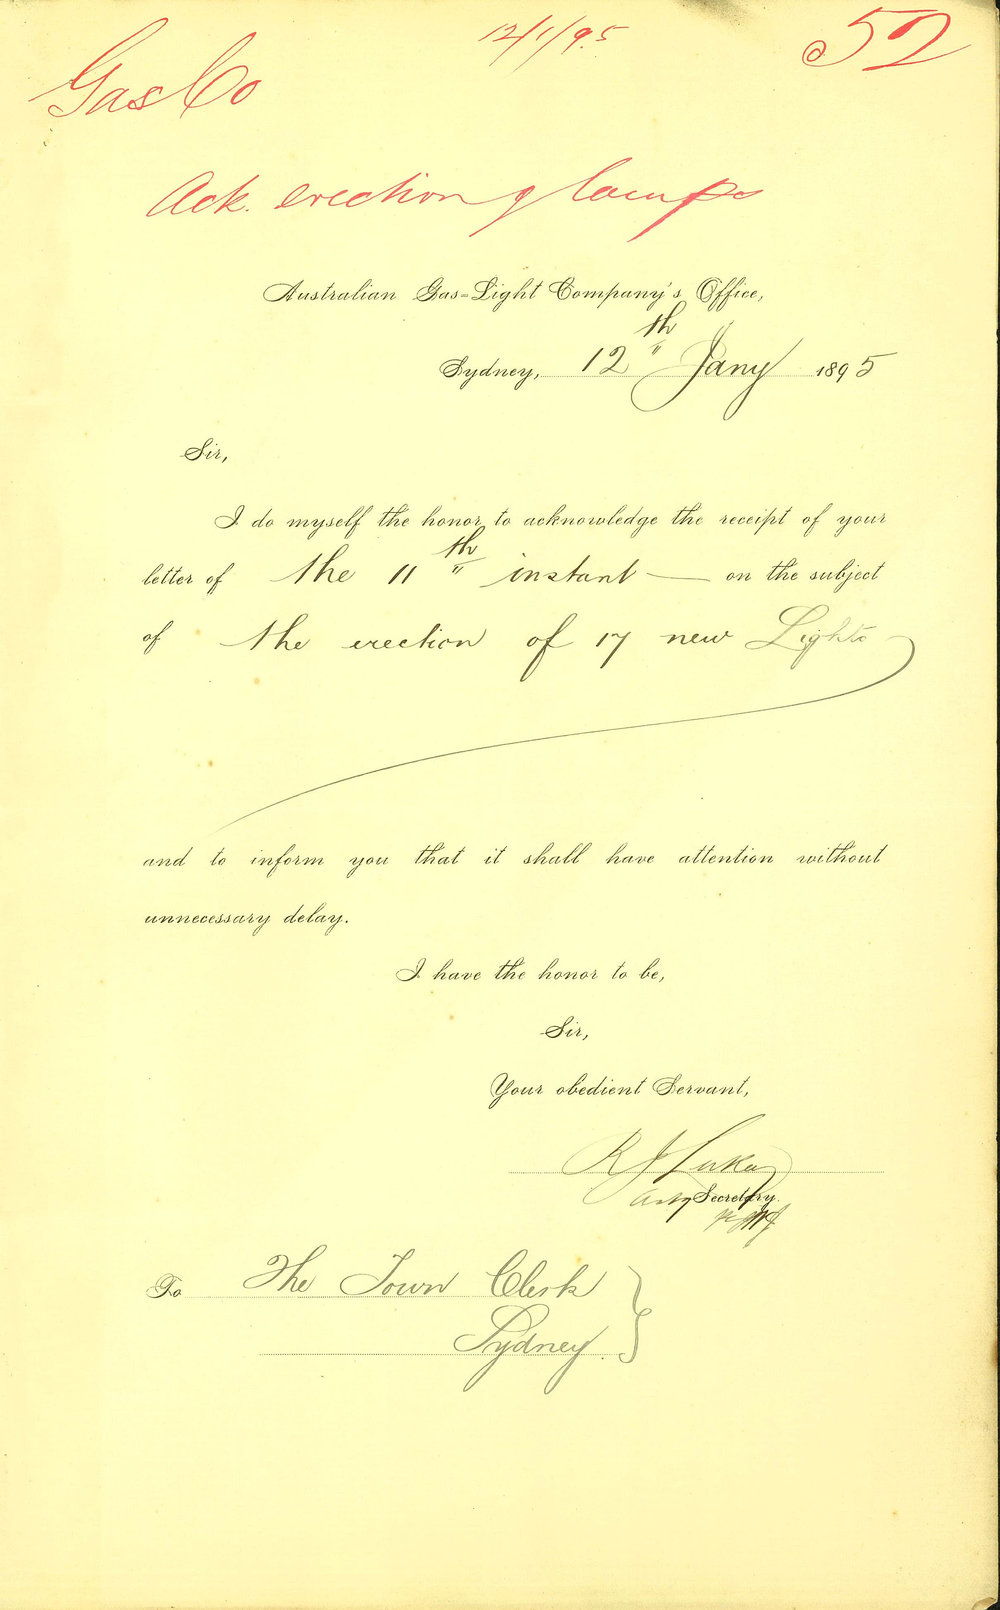 12/1/95
52
Gas Co
Ack. erection of lamps
Australian Gas-Light Company's Office,
Sydney, 12th Jany 1895
Sir,
I do myself the honor to acknowledge the receipt of your
letter of the 11th instant — on the subject
of the erection of 17 new Lights
and to inform you that it shall have attention without
unnecessary delay.
I have the honor to be,
Sir,
Your obedient Servant,
R J Lukey
Actg Secretary.
To The Town Clerk
Sydney.